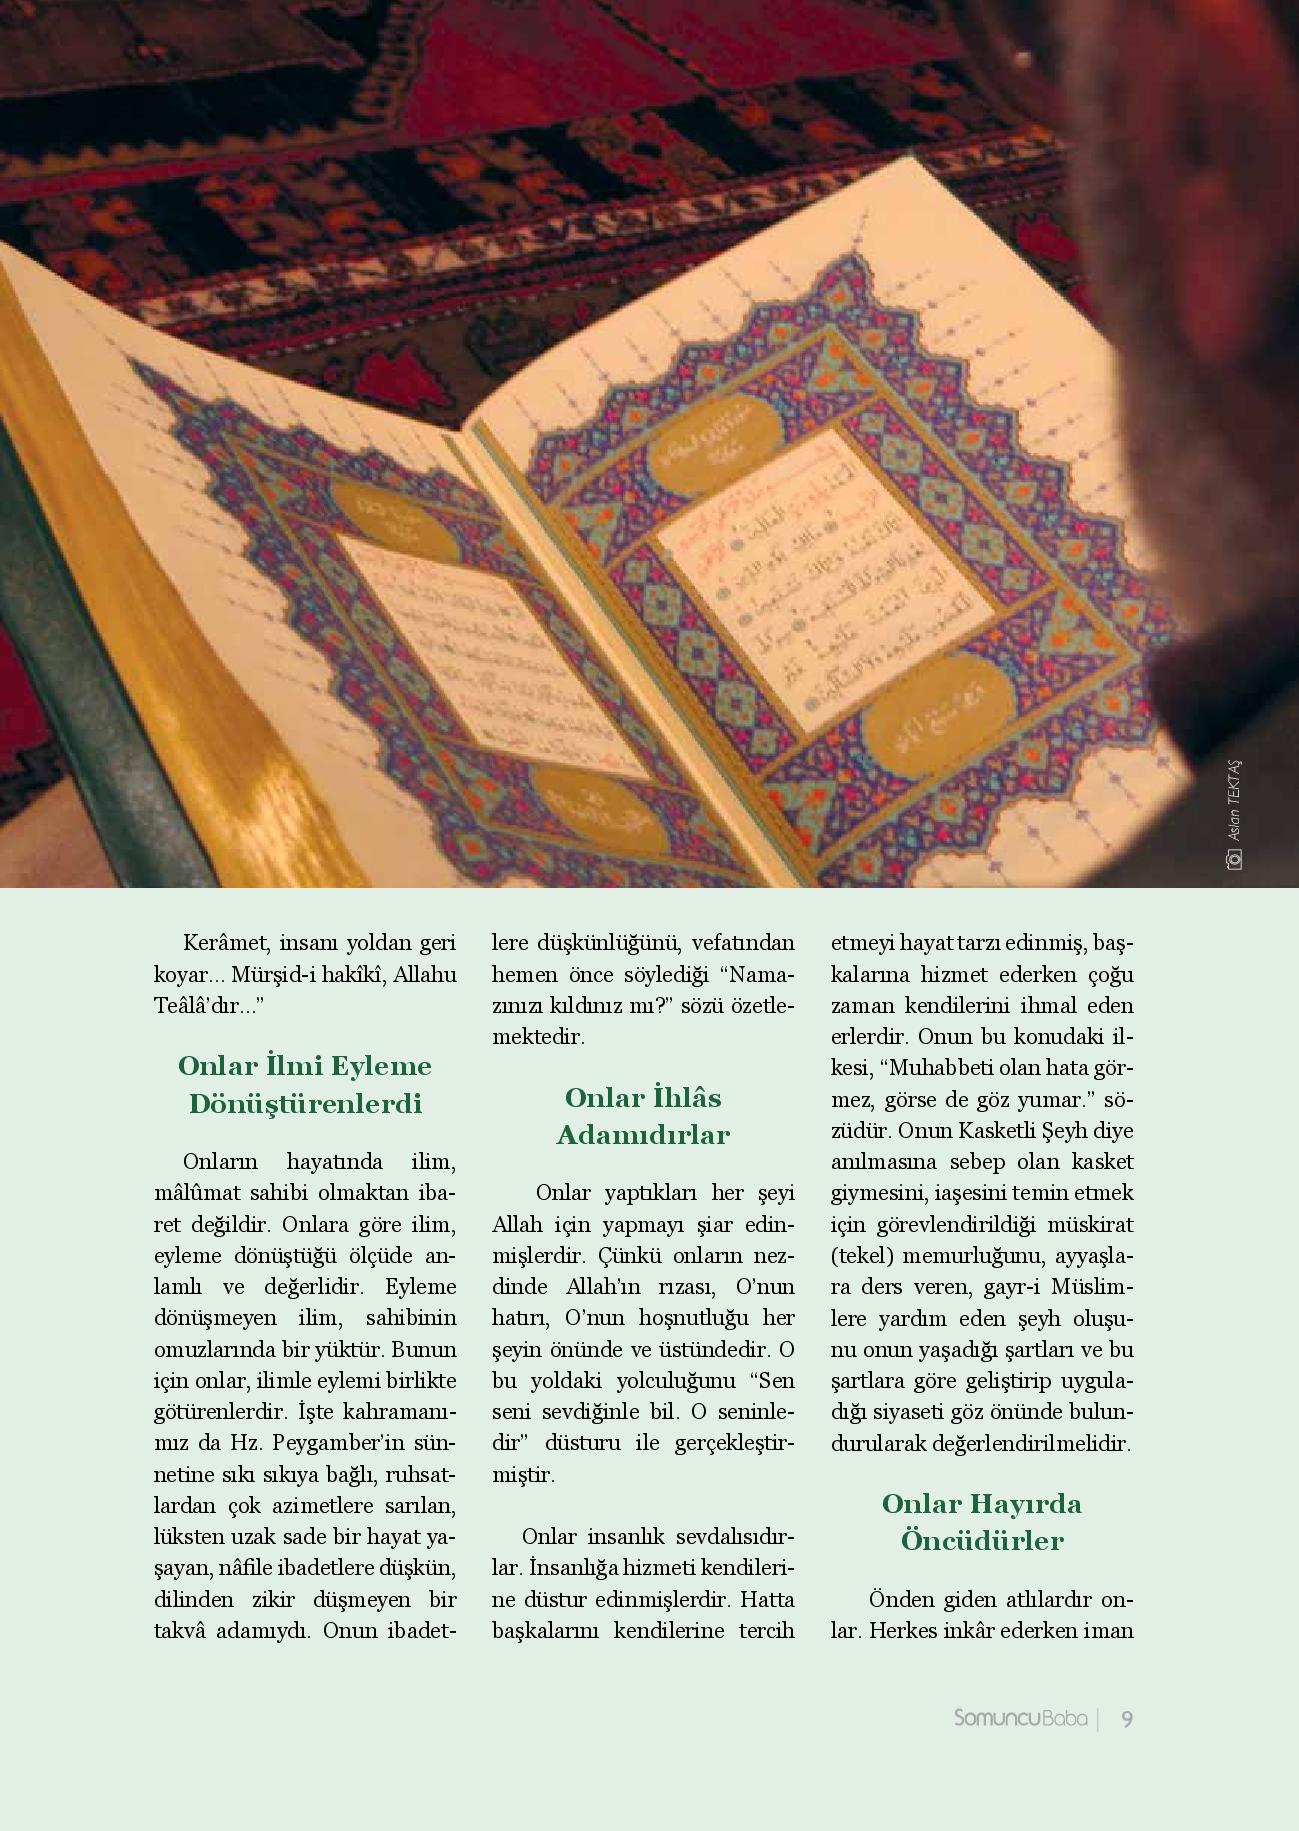 Aslan TEKTAŞ
Kerâmet, insanı yoldan geri
koyar... Mürşid-i hakîkî, Allahu
Teâlâ’dır...”
Onlar İlmi Eyleme
Dönüştürenlerdi
Onların hayatında ilim,
mâlûmat sahibi olmaktan iba-
ret değildir. Onlara göre ilim,
eyleme dönüştüğü ölçüde an-
lamlı ve değerlidir. Eyleme
dönüşmeyen ilim, sahibinin
omuzlarında bir yüktür. Bunun
için onlar, ilimle eylemi birlikte
götürenlerdir. İşte kahramanı-
mız da Hz. Peygamber’in sün-
netine sıkı sıkıya bağlı, ruhsat-
lardan çok azimetlere sarılan,
lüksten uzak sade bir hayat ya-
şayan, nâfile ibadetlere düşkün,
dilinden zikir düşmeyen bir
takvâ adamıydı. Onun ibadet-
lere düşkünlüğünü, vefatından
hemen önce söylediği “Nama-
zınızı kıldınız mı?” sözü özetle-
mektedir.
Onlar İhlâs
Adamıdırlar
Onlar yaptıkları her şeyi
Allah için yapmayı şiar edin-
mişlerdir. Çünkü onların nez-
dinde Allah’ın rızası, O’nun
hatırı, O’nun hoşnutluğu her
şeyin önünde ve üstündedir. O
bu yoldaki yolculuğunu “Sen
seni sevdiğinle bil. O seninle-
dir” düsturu ile gerçekleştir-
miştir.
Onlar insanlık sevdalısıdır-
lar. İnsanlığa hizmeti kendileri-
ne düstur edinmişlerdir. Hatta
başkalarını kendilerine tercih
etmeyi hayat tarzı edinmiş, baş-
kalarına hizmet ederken çoğu
zaman kendilerini ihmal eden
erlerdir. Onun bu konudaki il-
kesi, “Muhabbeti olan hata gör-
mez, görse de göz yumar.” sö-
züdür. Onun Kasketli Şeyh diye
anılmasına sebep olan kasket
giymesini, iaşesini temin etmek
için görevlendirildiği müskirat
(tekel) memurluğunu, ayyaşla-
ra ders veren, gayr-i Müslim-
lere yardım eden şeyh oluşu-
nu onun yaşadığı şartları ve bu
şartlara göre geliştirip uygula-
dığı siyaseti göz önünde bulun-
durularak değerlendirilmelidir.
Onlar Hayırda
Öncüdürler
Önden giden atlılardır on-
lar. Herkes inkâr ederken iman
SomuncuBaba | 9